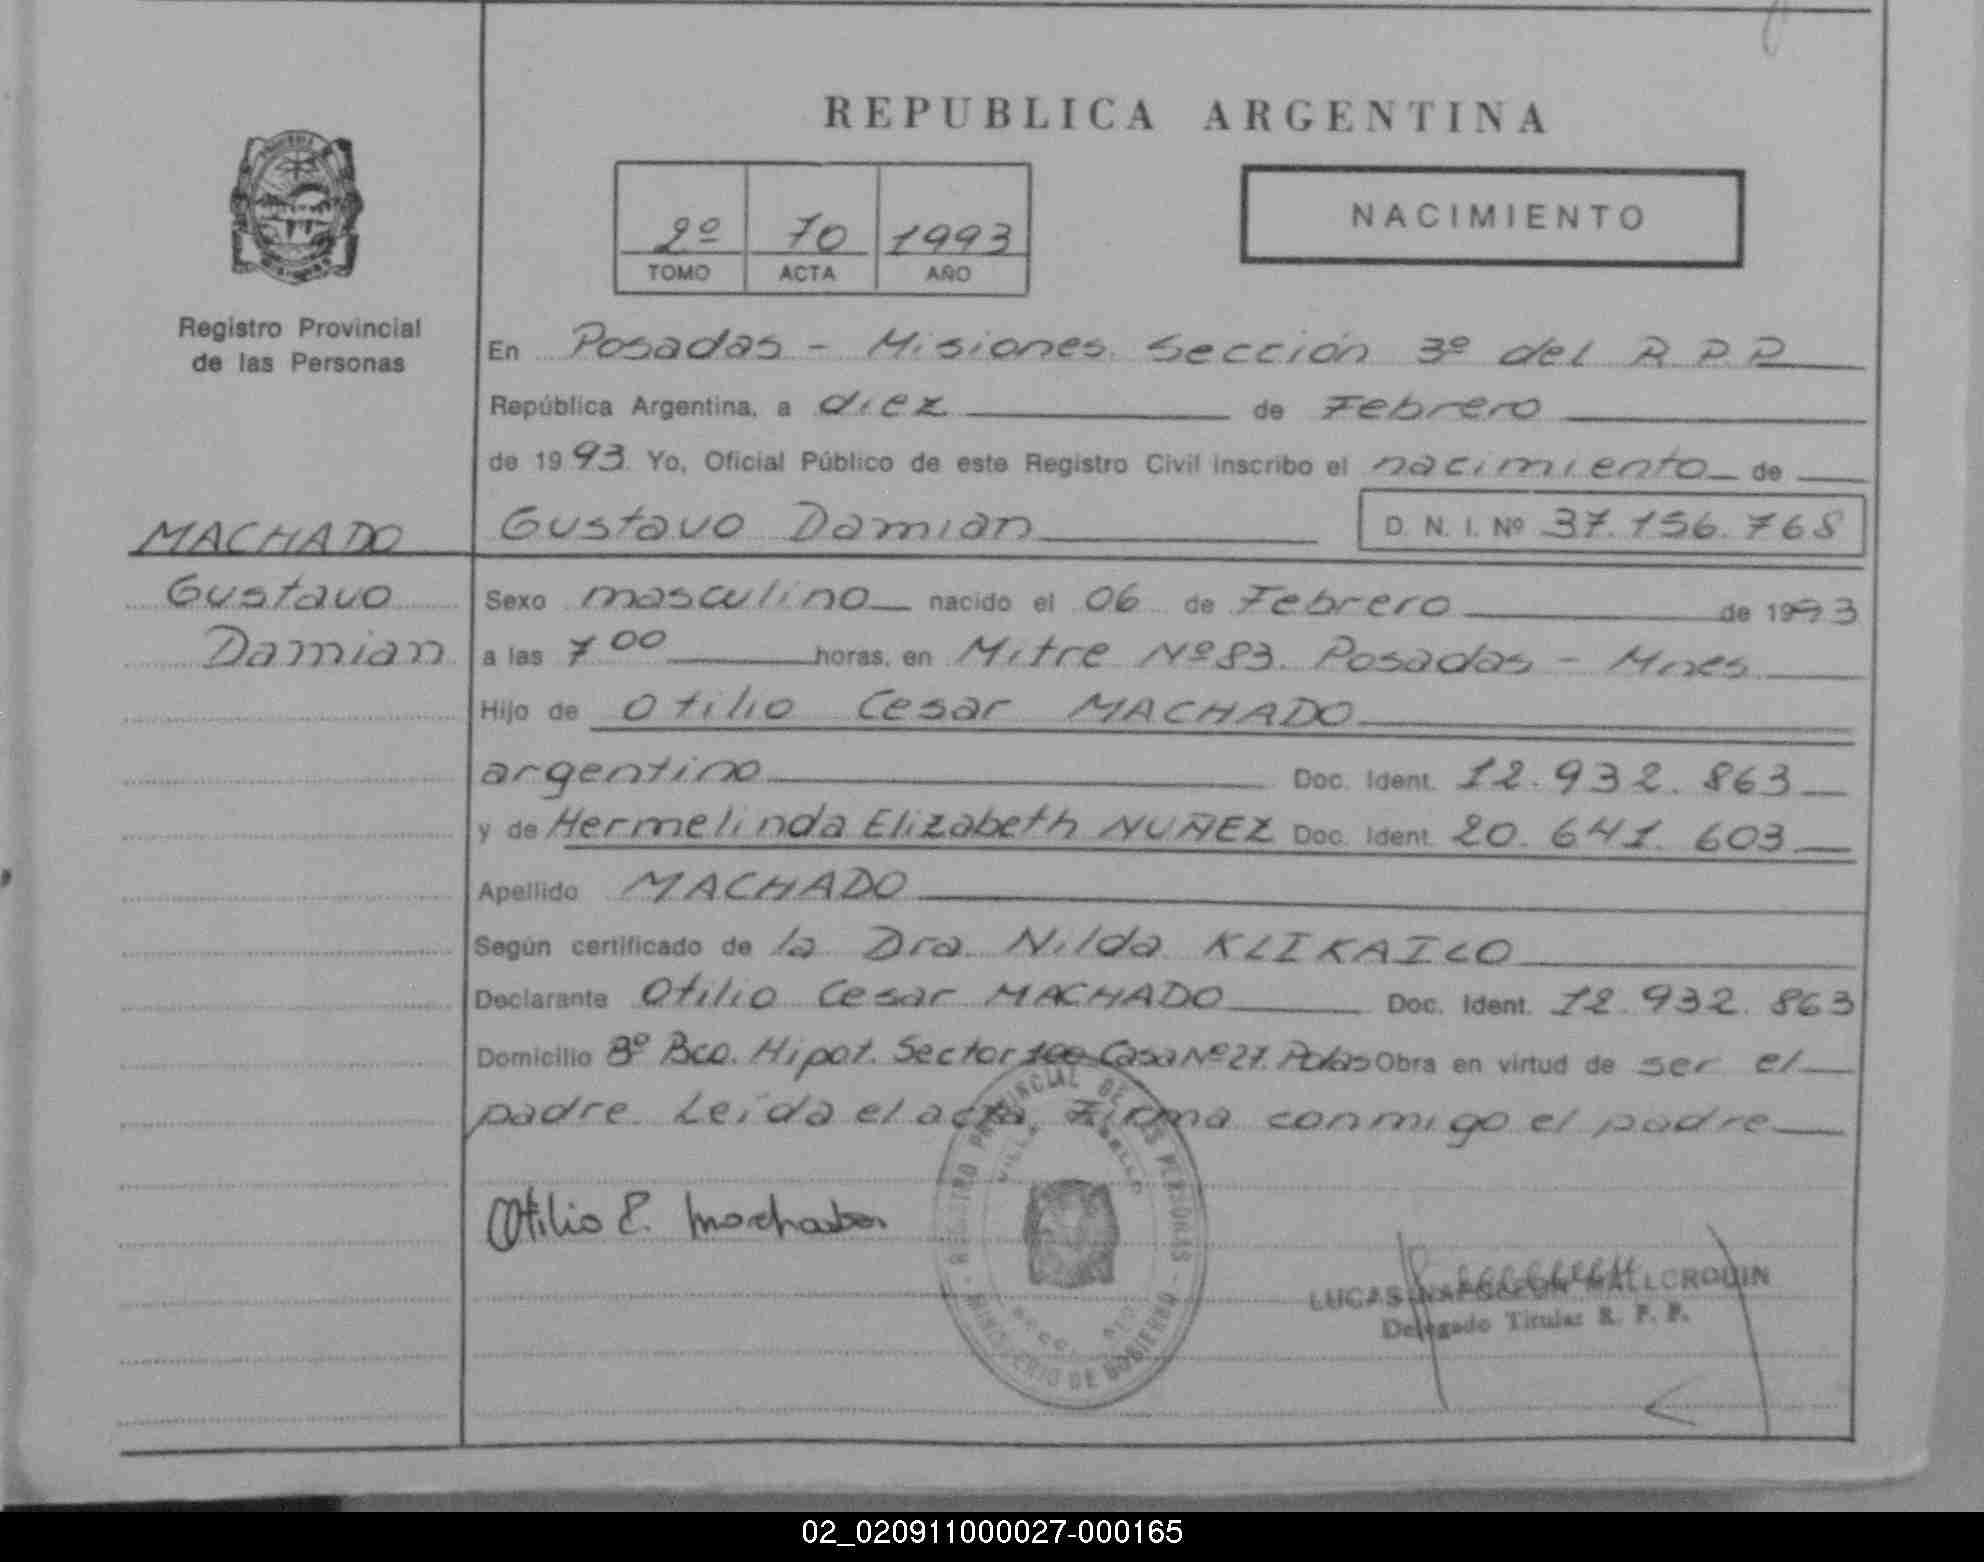 REPUBLICA ARGENTINA
2º 70 1993
TOMO ACTA AÑO
NACIMIENTO
Registro Provincial
de las Personas
MACHADO
Gustavo
Damian
En Posadas - Misiones. Sección 3º del R.P.P
República Argentina, a diez de Febrero
de 1993. Yo, Oficial Público de este Registro Civil inscribo el nacimiento de
Gustavo Damian D. N. I. Nº 37.156.768
Sexo masculino nacido el 06 de Febrero de 1993
a las 7 00 horas, en Mitre Nº 83. Posadas - Mnes
Hijo de Otilio Cesar MACHADO
argentino Doc. Ident. 12.932.863
y de Hermelinda Elizabeth NUÑEZ Doc. Ident. 20.641.603
Apellido MACHADO
Según certificado de la Dra. Nilda KLIKAILO
Declarante Otilio Cesar MACHADO Doc. Ident. 12.932.863
Domicilio Bº Bco. Hipot. Sector Casa Nº 27. Obra en virtud de ser el
padre. Leída el acta, Firma conmigo el padre
Otilio C. Machado
REGISTRO PROVINCIAL DE LAS PERSONAS
MINISTERIO DE GOBIERNO
LUCAS NAPOLEON
Delegado Titular R. P. P.
02_020911000027-000165